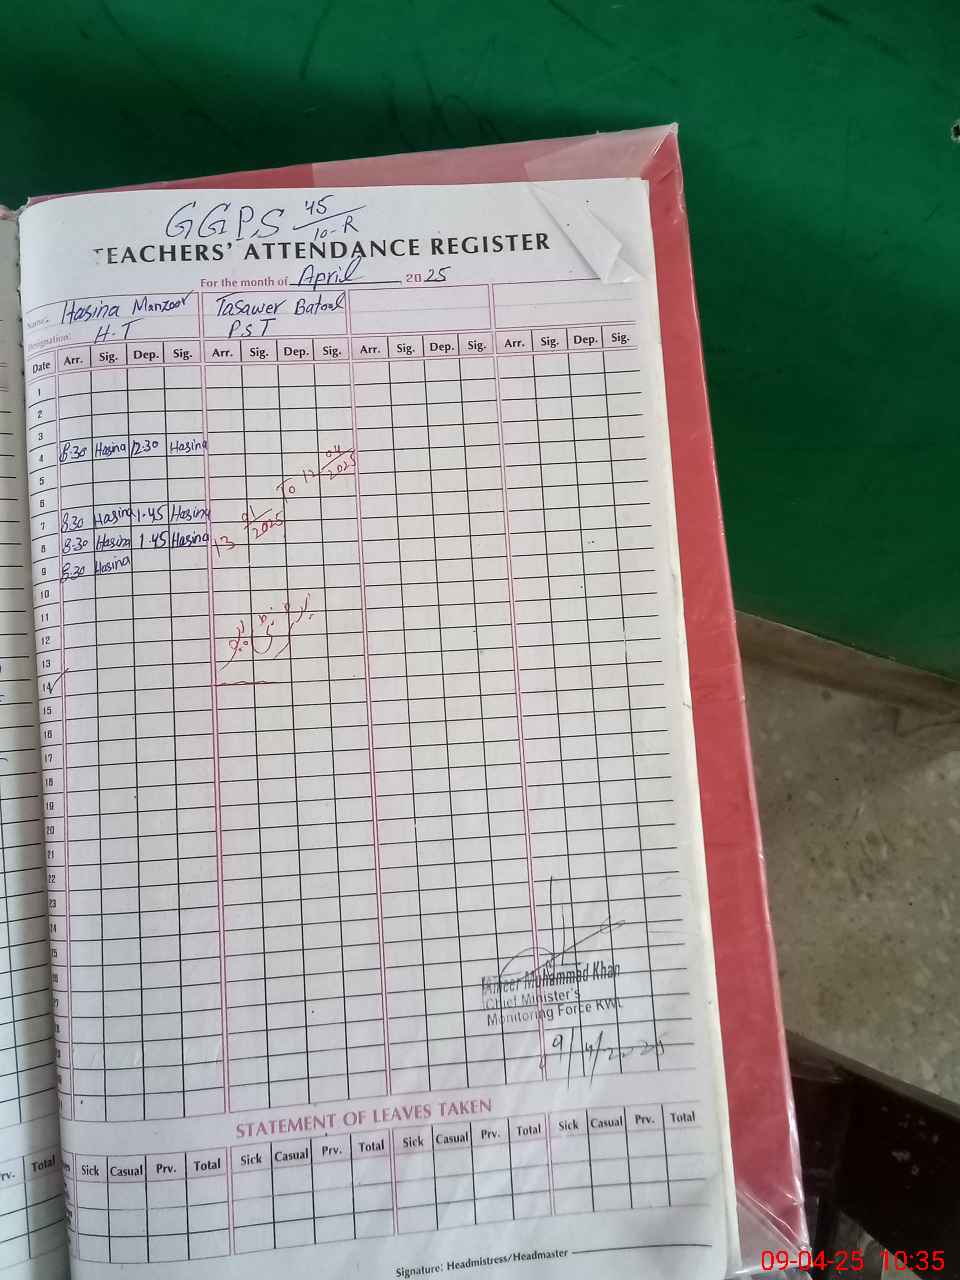 GGPS 45/10-R
TEACHERS' ATTENDANCE REGISTER
For the month of April 2025
Name: Hasina Manzoor Tasawer Batool
Designation: H.T P.S.T
Date Arr. Sig. Dep. Sig. Arr. Sig. Dep. Sig. Arr. Sig. Dep. Sig. Arr. Sig. Dep. Sig.
1
2
3
4 8:30 Hasina 12:30 Hasina
To 12 04/2025
5
6
7 8:30 Hasina 1.45 Hasina
8 8:30 Hasina 1.45 Hasina
13 /2025
9 8:30 Hasina
10
11
12
13
14
15
16
17
18
19
20
21
22
23
24
25
26
27
Ameer Muhammad Khan
Chief Minister's
Monitoring Force KWL
9/4/2025
STATEMENT OF LEAVES TAKEN
Total Sick Casual Prv. Total Sick Casual Prv. Total Sick Casual Prv. Total Sick Casual Prv. Total
Signature: Headmistress/Headmaster
09-04-25 10:35